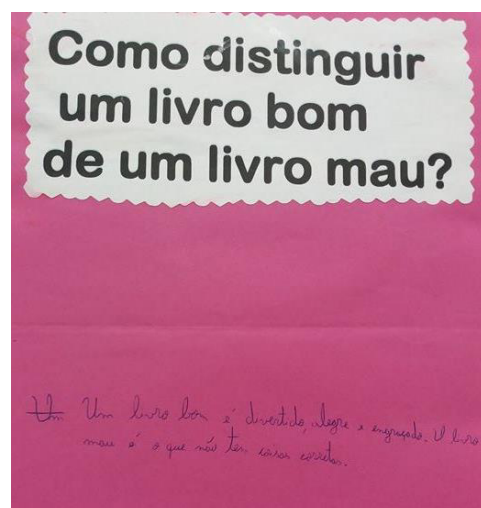 Como distinguir
um livro bom
de um livro mau?
Um Um livro bom é divertido, alegre e engraçado. O livro
mau é o que não tem coisas corretas.